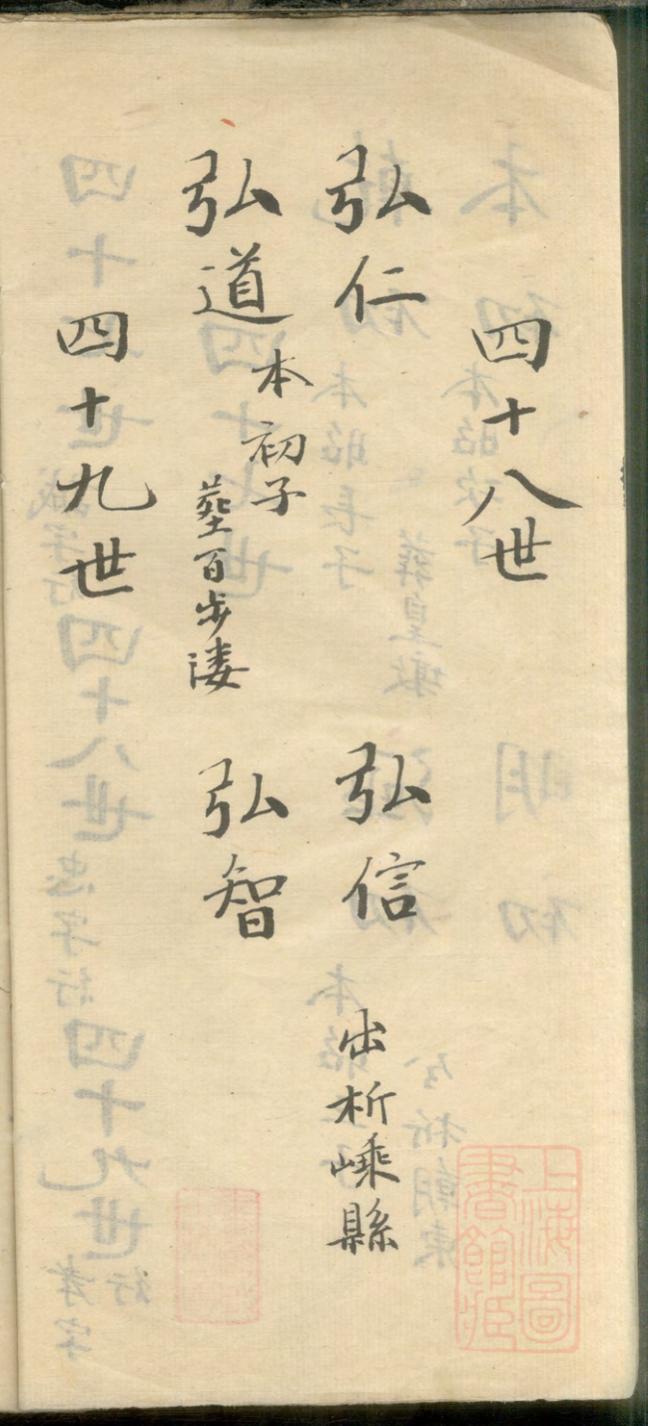 四十八世
弘仁
弘信 出析嵊縣
弘道 本初子 塟百步溇
弘智
四十九世
上海圖書館藏